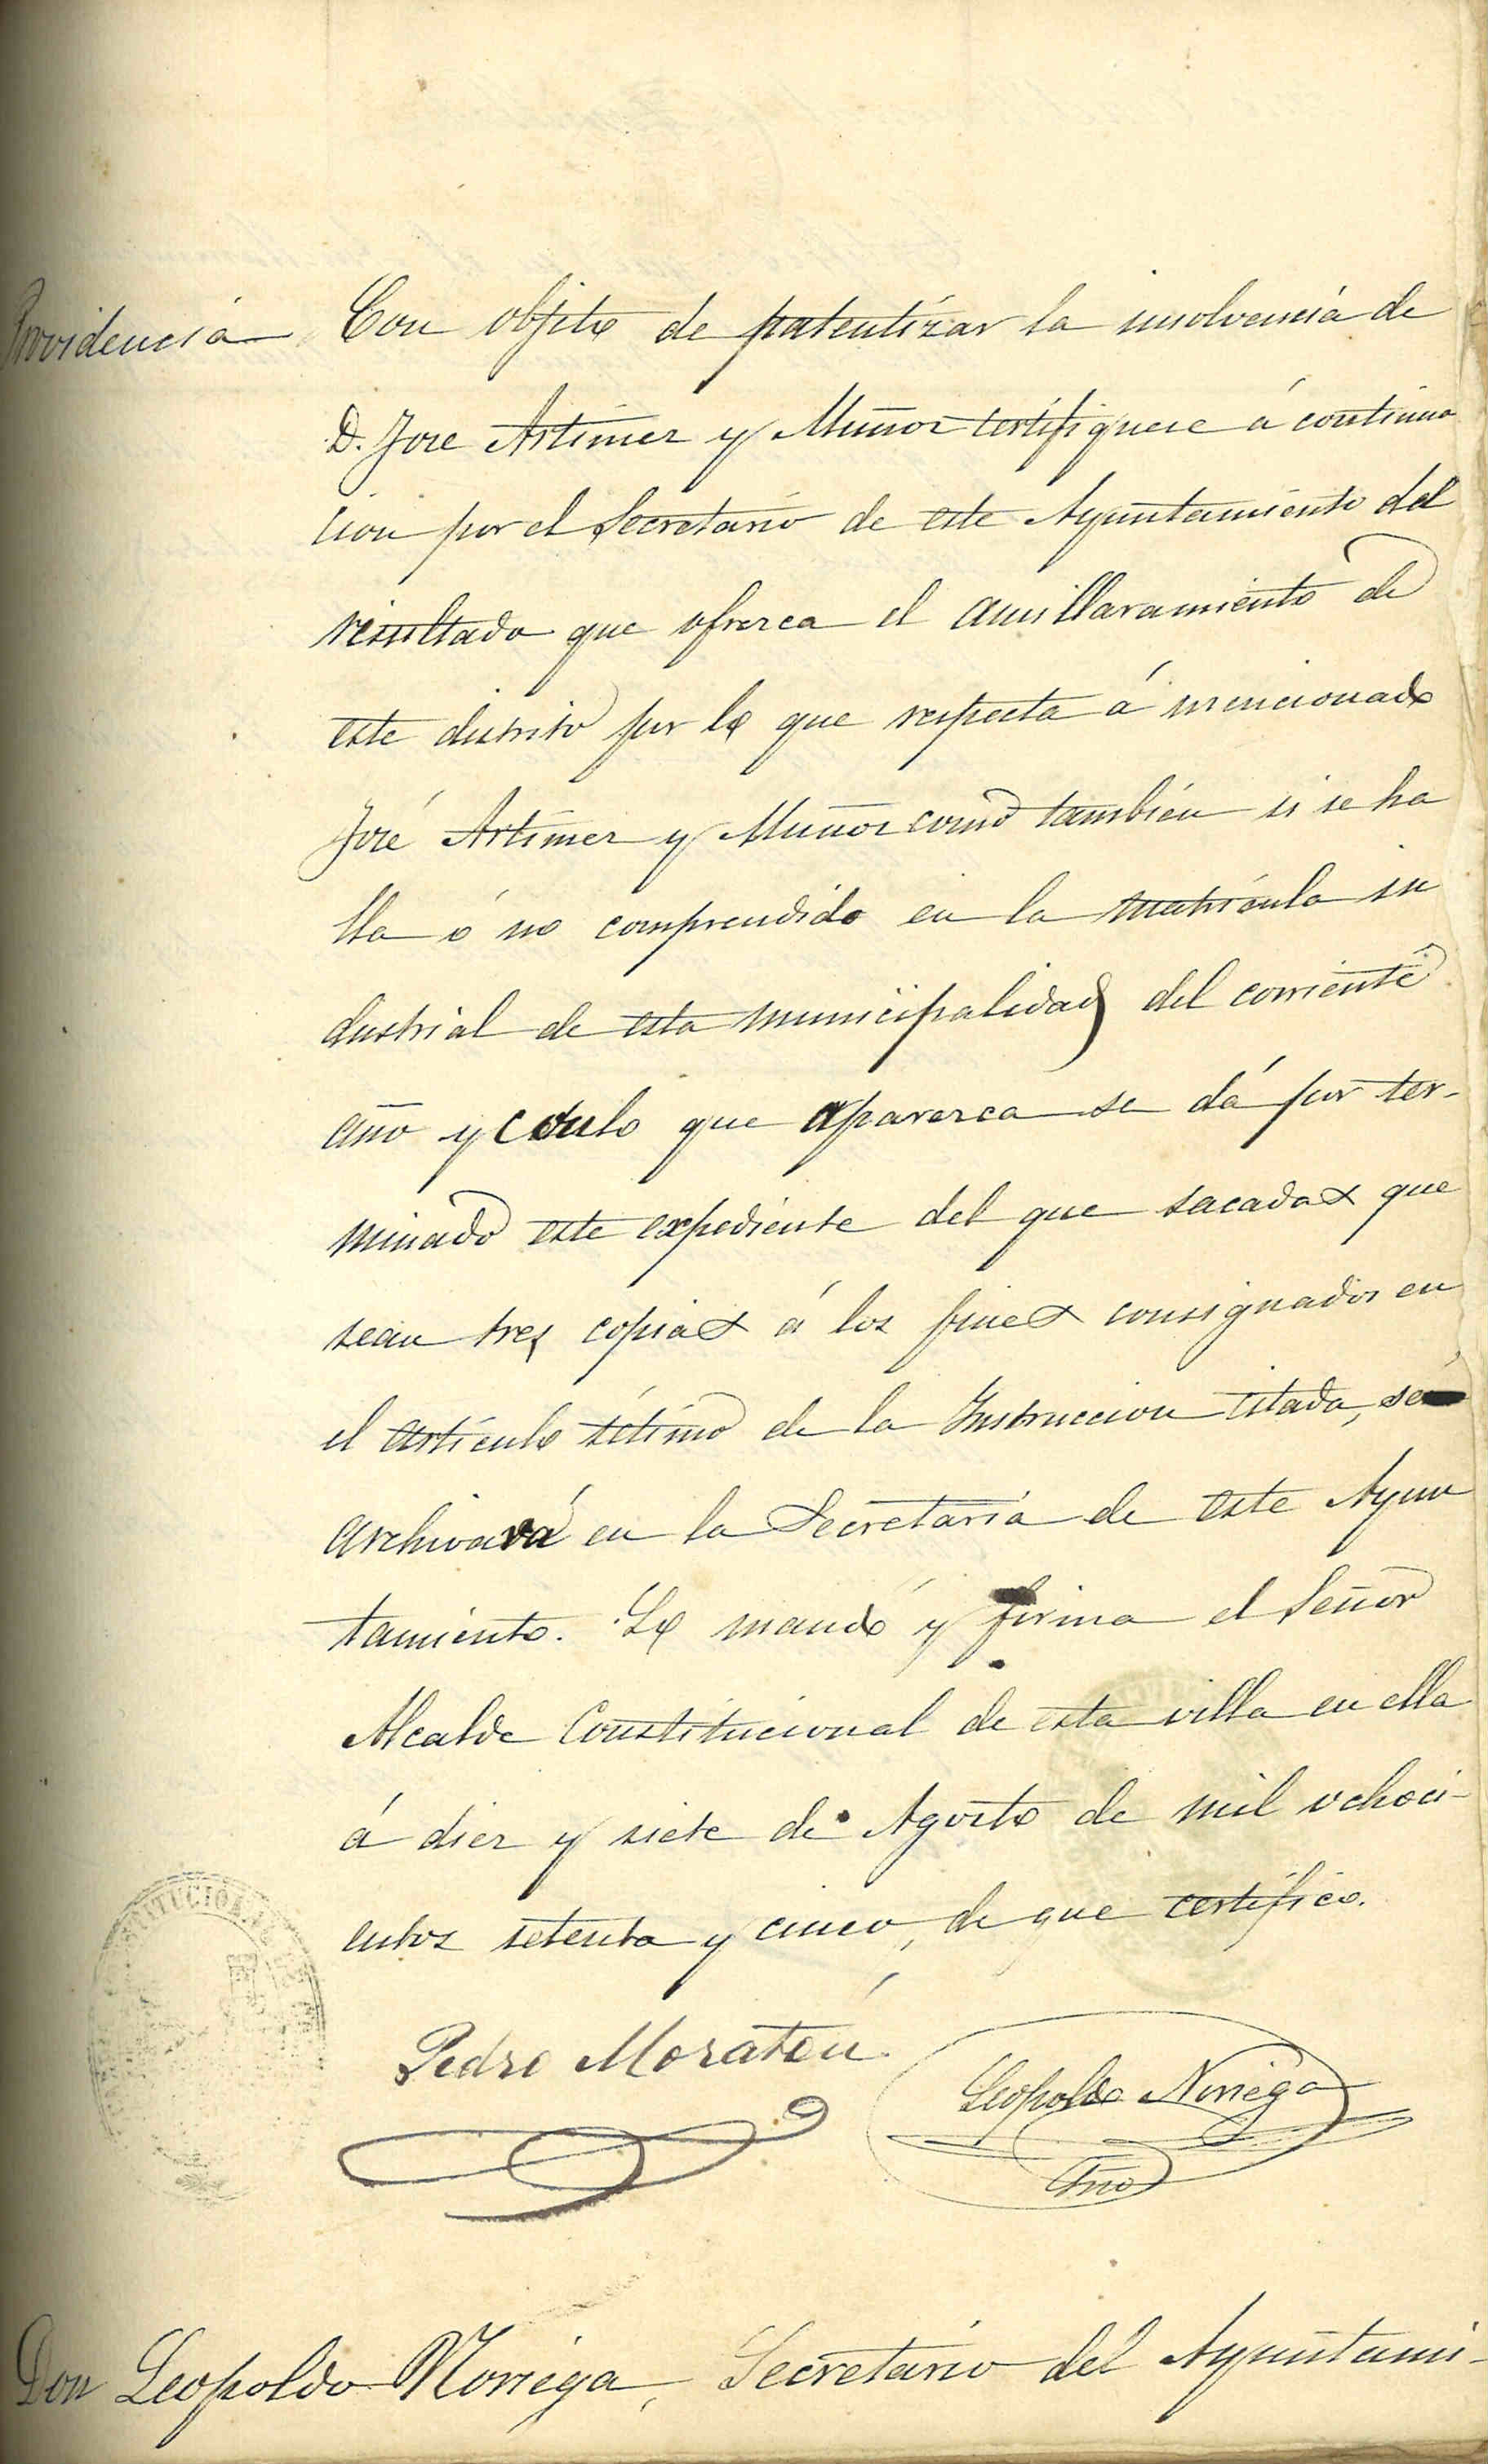 Providencia
Con objeto de patentizar la insolvencia de
D. Jose Artimez y Muñoz certifiquese á continua
cion por el Secretario de este Ayuntamiento del
resultado que ofrezca el amillaramiento de
este distrito por lo que respecta á mencionado
José Artimez y Muñoz como también si se ha
lla ó no comprendido en la matrícula in
dustrial de esta municipalidad del corriente
año y con lo que aparezca se dá por ter-
minado este expediente del que sacadas que
sean tres copias á los fines consignados en
el artículo sétimo de la Instruccion citada, se
archivará en la Secretaría de este Ayun
tamiento. Lo mandó y firma el Señor
Alcalde Constitucional de esta villa en ella
á diez y siete de Agosto de mil ochoci-
entos setenta y cinco, de que certifico.
Pedro Moratón
Leopoldo Noriega
Srio
Don Leopoldo Noriega, Secretario del Ayuntami-